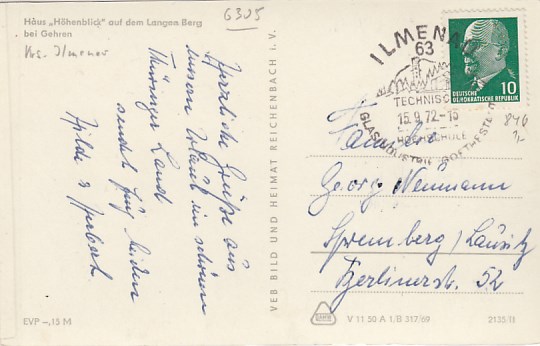 Haus „Höhenblick" auf dem Langen Berg
bei Gehren
Krs. Ilmenau
6305
Herzliche Grüße aus
unserem Urlaub im schönen
Thüringer Land
sendet Euch beiden
Hilde & Herbert
EVP –,15 M
VEB BILD UND HEIMAT REICHENBACH I. V.
ILMENAU
63
TECHNISCHE
15.9.72-15
HOCHSCHULE
GLASINDUSTRIE GOETHESTADT
DEUTSCHE
DEMOKRATISCHE REPUBLIK
10
846
Familie
Georg Neumann
Spremberg/Lausitz
Berlinerstr. 52
V 11 50 A 1/B 317/69
2135/11